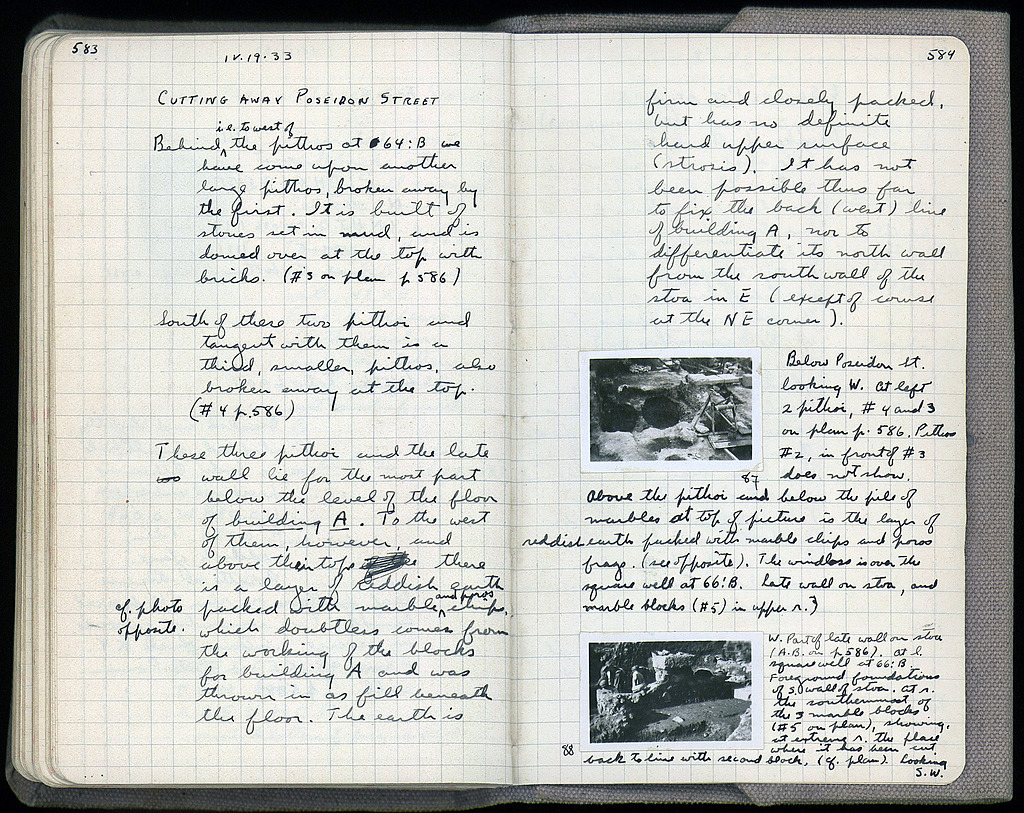 583
IV.19.33
CUTTING AWAY POSEIDON STREET
i.e. to west of
Behind the pithos at 64:B we
have come upon another
large pithos, broken away by
the first. It is built of
stones set in mud, and is
domed over at the top with
bricks. (#3 on plan p.586)
South of these two pithoi and
tangent with them is a
third, smaller, pithos, also
broken away at the top.
(#4 p.586)
These three pithoi and the late
wall lie for the most part
below the level of the floor
of building A. To the west
of them, however, and
above their tops there
is a layer of reddish earth
and poros
cf. photo packed with marble chips,
opposite. which doubtless comes from
the working of the blocks
for building A and was
thrown in as fill beneath
the floor. The earth is
584
firm and closely packed,
but has no definite
hard upper surface
(strosis). It has not
been possible thus far
to fix the back (west) line
of building A, nor to
differentiate its north wall
from the south wall of the
stoa in E (except of course
at the NE corner).
Below Poseidon St.
looking W. At left
2 pithoi, #4 and 3
on plan p. 586. Pithos
#2, in front of #3
does not show.
87
Above the pithoi and below the pile of
marbles at top of picture is the layer of
reddish earth packed with marble chips and poros
frags. (see opposite). The windlass is over the
square well at 66:B. Late wall on stoa, and
marble blocks (#5) in upper r.
W. Part of late wall on stoa
(A.B. on p.586). At l.
square well at 66:B
Foreground foundations
of S. wall of stoa. At r.
the southernmost of
the 3 marble blocks
(#5 on plan), showing,
at extreme r. the place
where it has been cut
88
back to line with second block, (cf. plan). Looking
S.W.